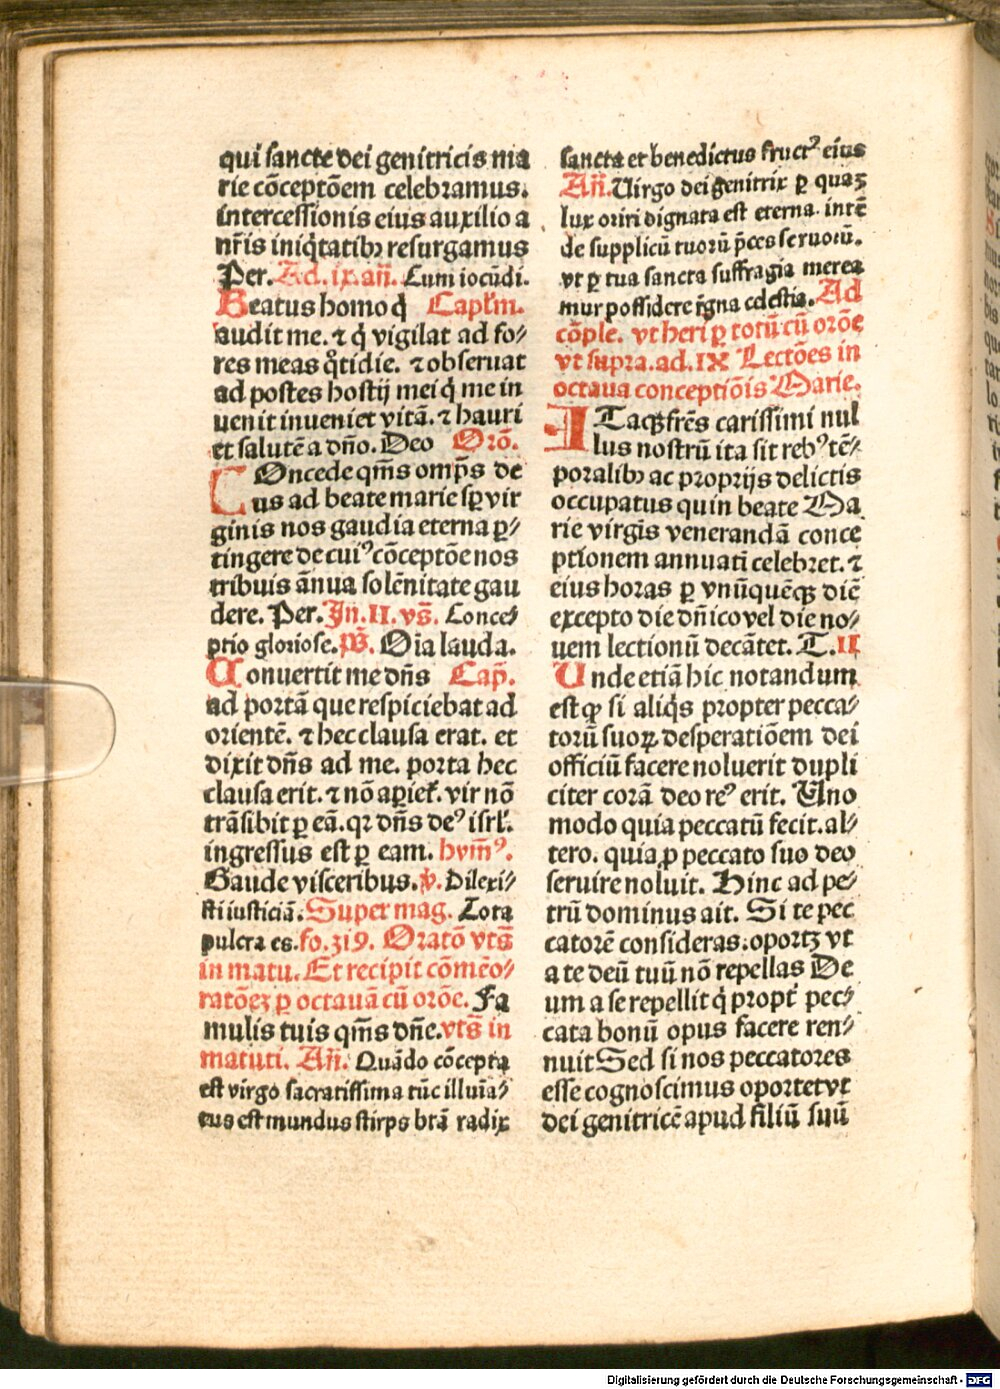 qui sancte dei genitricis ma
rie cōceptōem celebramus.
intercessionis eius auxilio a
nr̄is iniq̇tatibꝫ resurgamus
Per. Ad. ix. an̄. Cum iocūdi.
Beatus homo q̇ Capl̄m.
audit me. ⁊ q̇ vigilat ad fo⸗
res meas q̊tidie. ⁊ obseruat
ad postes hostij mei q̇ me in
uenit inueniet vitā. ⁊ hauri
et salutē a dn̄o. Deo Orō.
COncede qm̄s omp̄s de
us ad beate marie sꝑ vir
ginis nos gaudia eterna ꝑ⸗
tingere de cuiꝰ cōceptōe nos
tribuis ānua solēnitate gau
dere. Per. In. II. vs̄. Conce⸗
ptio gloriose. ps̄. Oīa lauda.
Conuertit me dn̄s Cap̄.
ad portā que respiciebat ad
orientē. ⁊ hec clausa erat. et
dixit dn̄s ad me. porta hec
clausa erit. ⁊ nō aꝑiet᷑. vir nō
trāsibit ꝑ eā. qꝛ dn̄s deꝰ isrl̄.
ingressus est ꝑ eam. hym̄ꝰ.
Gaude visceribus. ℣. Dilexi⸗
sti iusticiā. Super mag. Tota
pulcra es. fo. 319. Oratō vts̄
in matu. Et recipit cōmēo⸗
ratōeꝫ ꝑ octauā cū orōe. Fa
mulis tuis qm̄s dn̄e. vts̄ in
matuti. An̄. Quādo cōcepta
est virgo sacratissima tūc illuīa⸗
tus est mundus stirps btā radix
sancta et benedictus fructꝰ eius
An̄. Uirgo dei genitrix ꝑ quaꝫ
lux oriri dignata est eterna. intē
de supplicū tuorū p̄ces seruorū.
vt ꝑ tua sancta suffragia merea
mur possidere rēgna celestia. Ad
cōple. vt heri ꝑ totū cū orōe
vt supra. ad. IX Lectōes in
octaua conceptiōis Marie.
ITaqꝫ frēs carissimi nul
lus nostrū ita sit rebꝰ tē⸗
poralibꝫ ac proprijs delictis
occupatus quin beate Ma
rie virgīs venerandā conce
ptionem annuatī celebret. ⁊
eius horas ꝑ vnūquēqꝫ diē
excepto die dn̄ico vel die no⸗
uem lectionū decātet. T. II
Unde etiā hic notandum
est ꝙ si aliq̇s propter pecca⸗
torū suoꝝ desperatiōem dei
officiū facere noluerit dupli
citer corā deo reꝰ erit. Uno
modo quia peccatū fecit. al⸗
tero. quia ꝓ peccato suo deo
seruire noluit. Hinc ad pe⸗
trū dominus ait. Si te pec
catorē consideras. oportꝫ vt
a te deū tuū nō repellas De
um a se repellit q̇ propt̄ pec⸗
cata bonū opus facere ren⸗
nuit Sed si nos peccatores
esse cognoscimus oportet vt
dei genitricē apud filiū suū
Digitalisierung gefördert durch die Deutsche Forschungsgemeinschaft - DFG